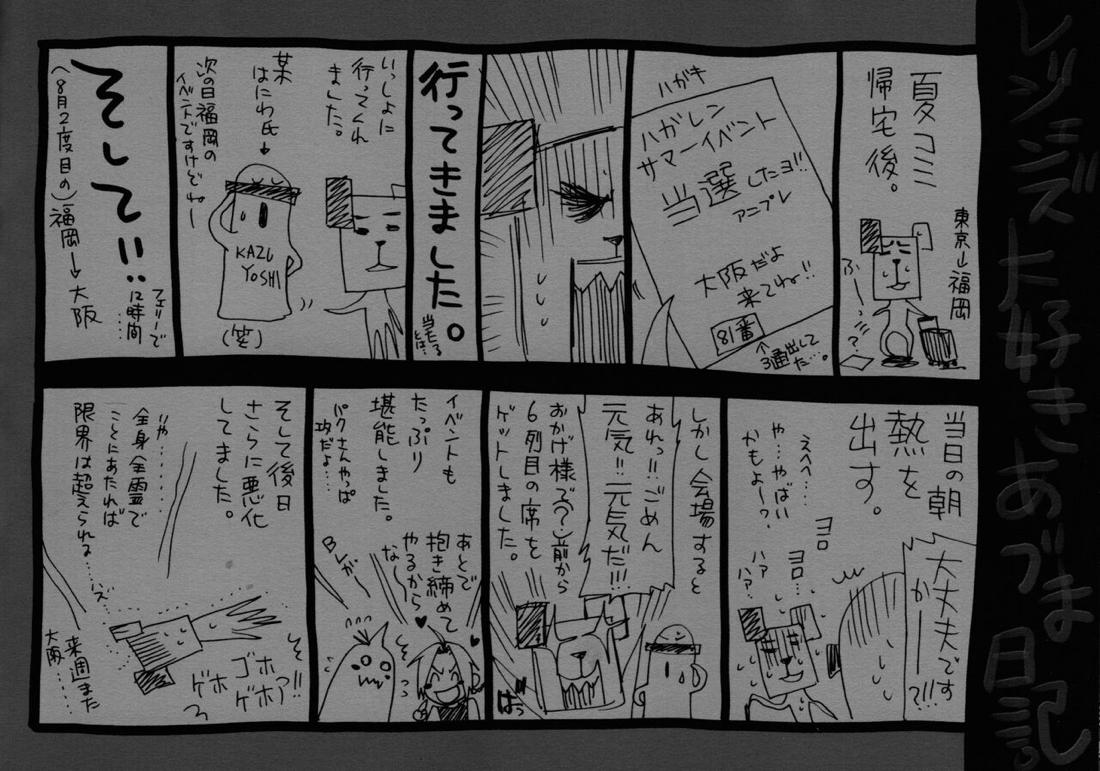 レッシズ大好きあづま日記。
夏コミ
帰宅後。
東京→福岡
ふー…
ハガキ
ハガレン
サマーイベント
当選したヨ!!
アニプレ
大阪だよ
来てね!!
81番
↑
3通出して
た…。
行ってきました。
当たる
とは…
いっしょに
行ってくれ
ました。
某
はにわ氏→
次の日福岡の
イベントですけどねー
KAZU
YOSHI
(笑)
そして!!…
フェリーで
12時間……
(8月2度目の)福岡→大阪
当日の朝
熱を
出す。
大丈夫です
かー―?!!
えへへ…
や…やばい
かもよ〜?
ヨロ
ヨロ…
ハァ
ハァ
しかし会場すると
あれっ!!ごめん
元気!!元気だ!!!
おかげ様で(?)前から
6列目の席を
ゲットしました。
ばっ
イベントも
たっぷり
堪能しました。
パクさんやっぱ
攻だよ…
あとで
抱き締めて
やるから
な〜♥
BLが…
そして後日
さらに悪化
してました。
いや……
全身全霊で
ことにあたれば
限界は超えられる……え
ゴホッ!!
ゲホ
ゲホ
来週また
大阪……